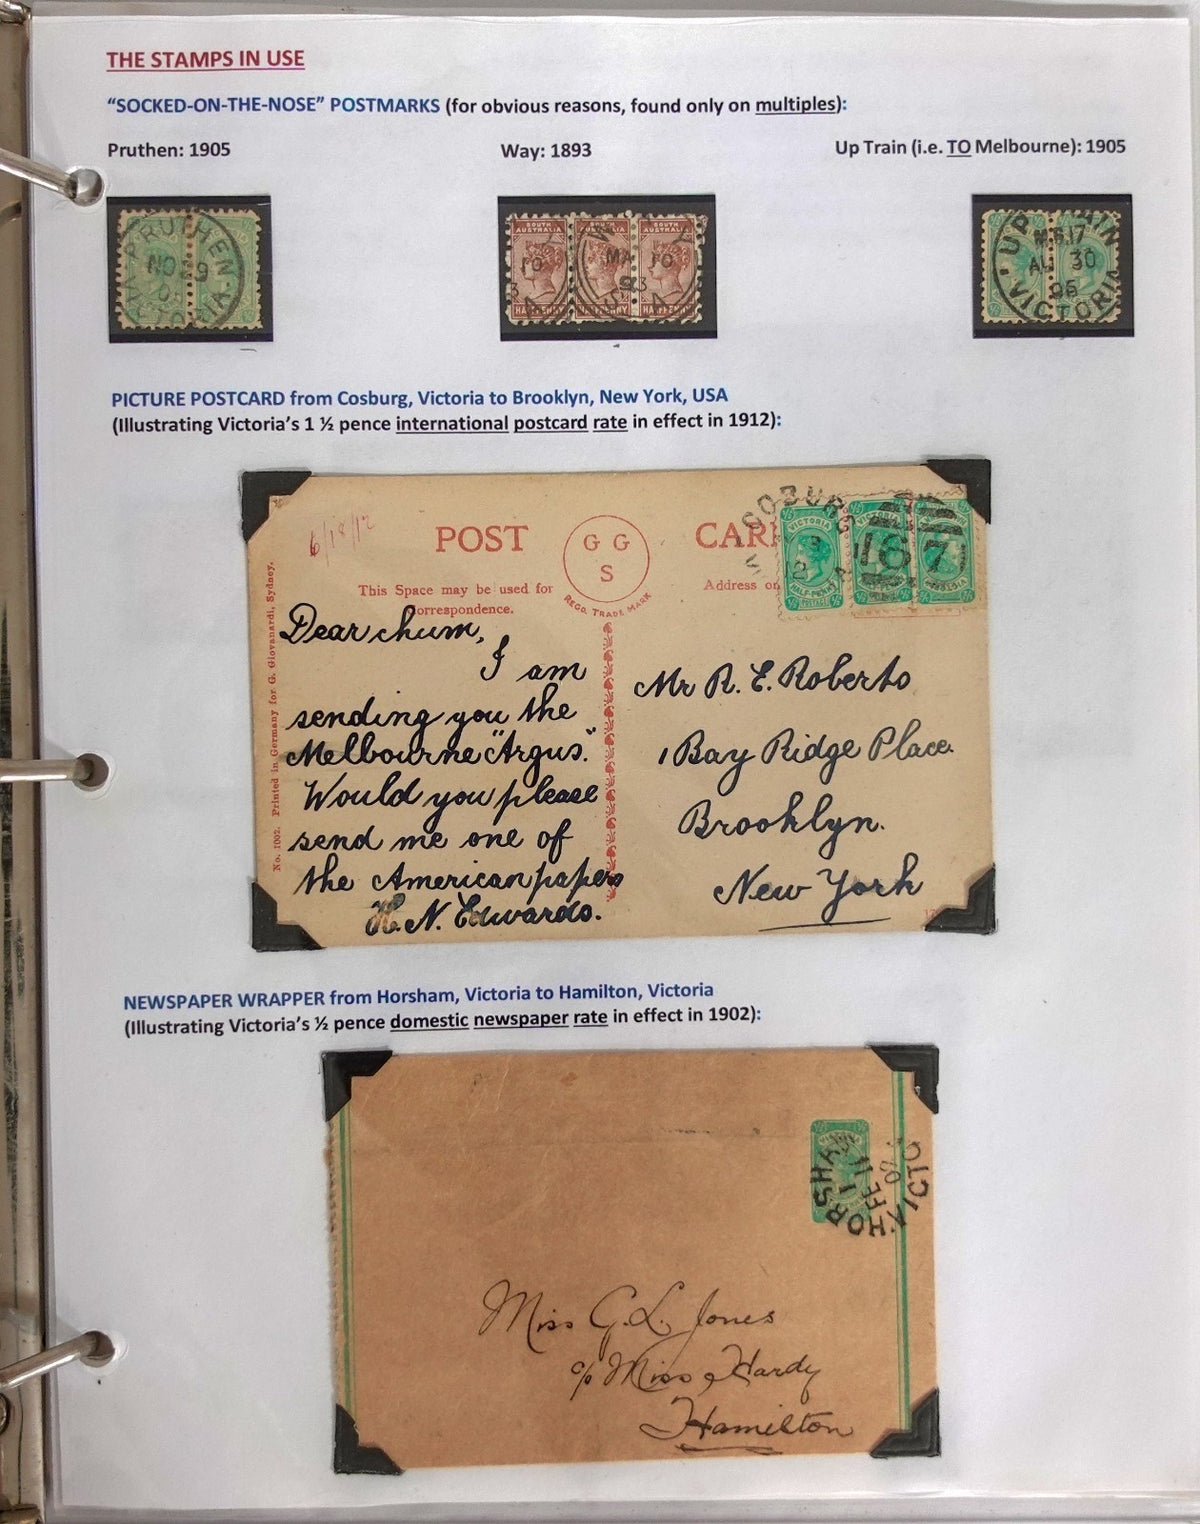 THE STAMPS IN USE
“SOCKED-ON-THE-NOSE” POSTMARKS (for obvious reasons, found only on multiples):
Pruthen: 1905
Way: 1893
Up Train (i.e. TO Melbourne): 1905
PRUTHEN
NO 29
05
VICTORIA
SOUTH AUSTRALIA
WAY
MA 10
93
S.A
HALFPENNY
UP TRAIN
M.G.17
AU 30
05
VICTORIA
PICTURE POSTCARD from Cosburg, Victoria to Brooklyn, New York, USA
(Illustrating Victoria’s 1 ½ pence international postcard rate in effect in 1912):
6/18/12
POST CAR
G G
S
REGD. TRADE MARK
This Space may be used for
correspondence.
Address on
COBURG
VICTORIA
HALF-PENNY
POSTAGE
167
No. 1002. Printed in Germany for G. Giovanardi, Sydney.
Dear chum,
I am
sending you the
Melbourne "Argus."
Would you please
send me one of
the American papers
H. N. Edwards.
Mr R. E. Roberts
1 Bay Ridge Place
Brooklyn.
New York
NEWSPAPER WRAPPER from Horsham, Victoria to Hamilton, Victoria
(Illustrating Victoria’s ½ pence domestic newspaper rate in effect in 1902):
HORSHAM
11
FE 11
02
VICTO
Miss G. L. Jones
c/o Miss Hardy
Hamilton